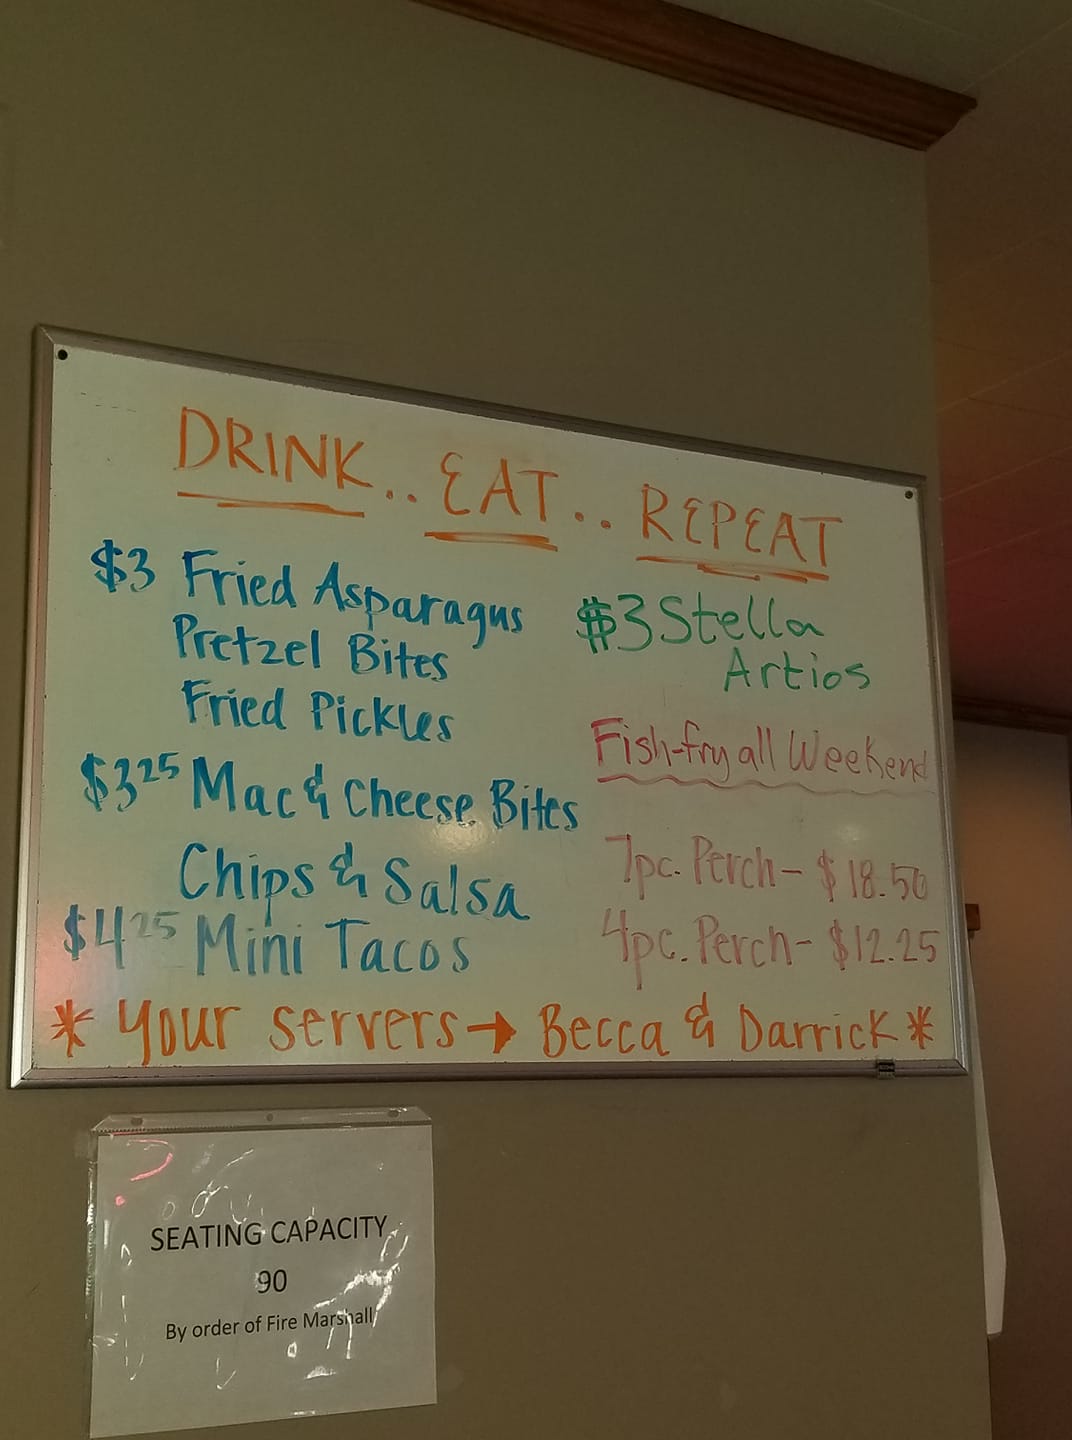 DRINK.. EAT.. REPEAT
$3 Fried Asparagus
Pretzel Bites
Fried Pickles
$3 25 Mac & Cheese Bites
Chips & Salsa
$4 25 Mini Tacos
$3 Stella
Artios
Fish-fry all Weekend
7pc. Perch- $18.50
4pc. Perch- $12.25
* Your servers → Becca & Darrick *
SEATING CAPACITY
90
By order of Fire Marshall